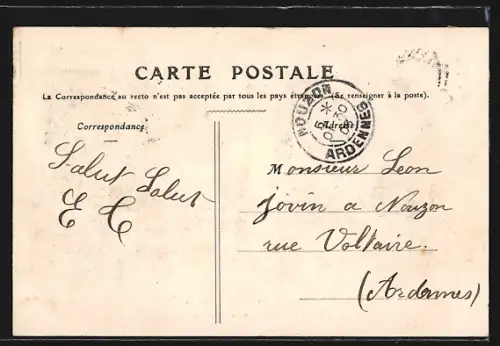 CARTE POSTALE
La Correspondance au recto n'est pas acceptée par tous les pays étrangers (Se renseigner à la poste).
Correspondance
Adresse
NOUZON
ARDENNES
Salut Salut
E C
Monsieur Leon
Jovin a Nouzon
rue Voltaire.
(Ardennes)